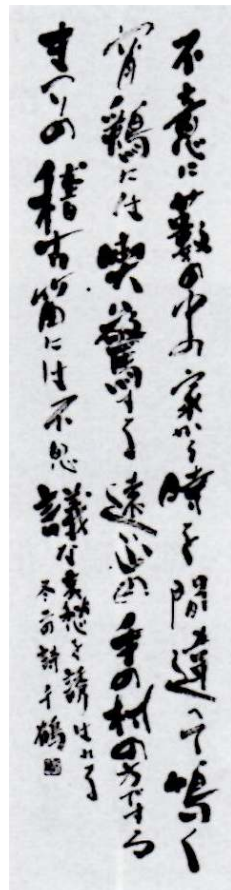 不意に藪の中の家から時を間違へて鳴く
宵鶏には喫驚する遠い山手の村の方でする
まつりの稽古笛には不思議な哀愁を誘はれる
冬骨詩 千鶴